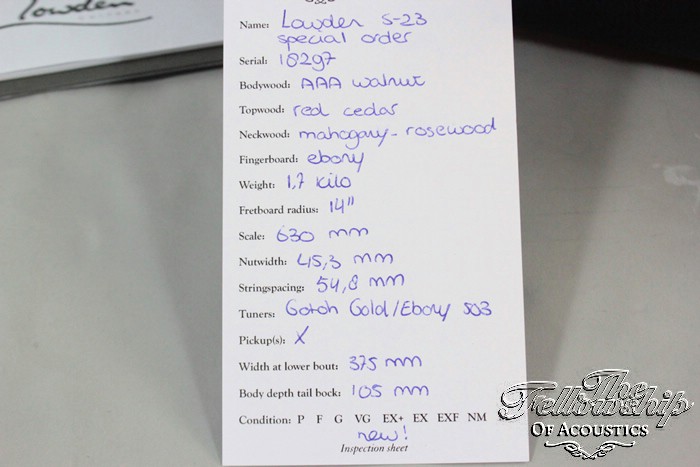 Lowden
Name: Lowden S-23
special order
Serial: 18297
Bodywood: AAA walnut
Topwood: red cedar
Neckwood: mahogany - rosewood
Fingerboard: ebony
Weight: 1,7 kilo
Fretboard radius: 14"
Scale: 630 mm
Nutwidth: 45,3 mm
Stringspacing: 54,8 mm
Tuners: Gotoh Gold/Ebony 503
Pickup(s): X
Width at lower bout: 375 mm
Body depth tail bock: 105 mm
Condition: P F G VG EX+ EX EXF NM
new!
Inspection sheet
The
Fellowship
Of Acoustics